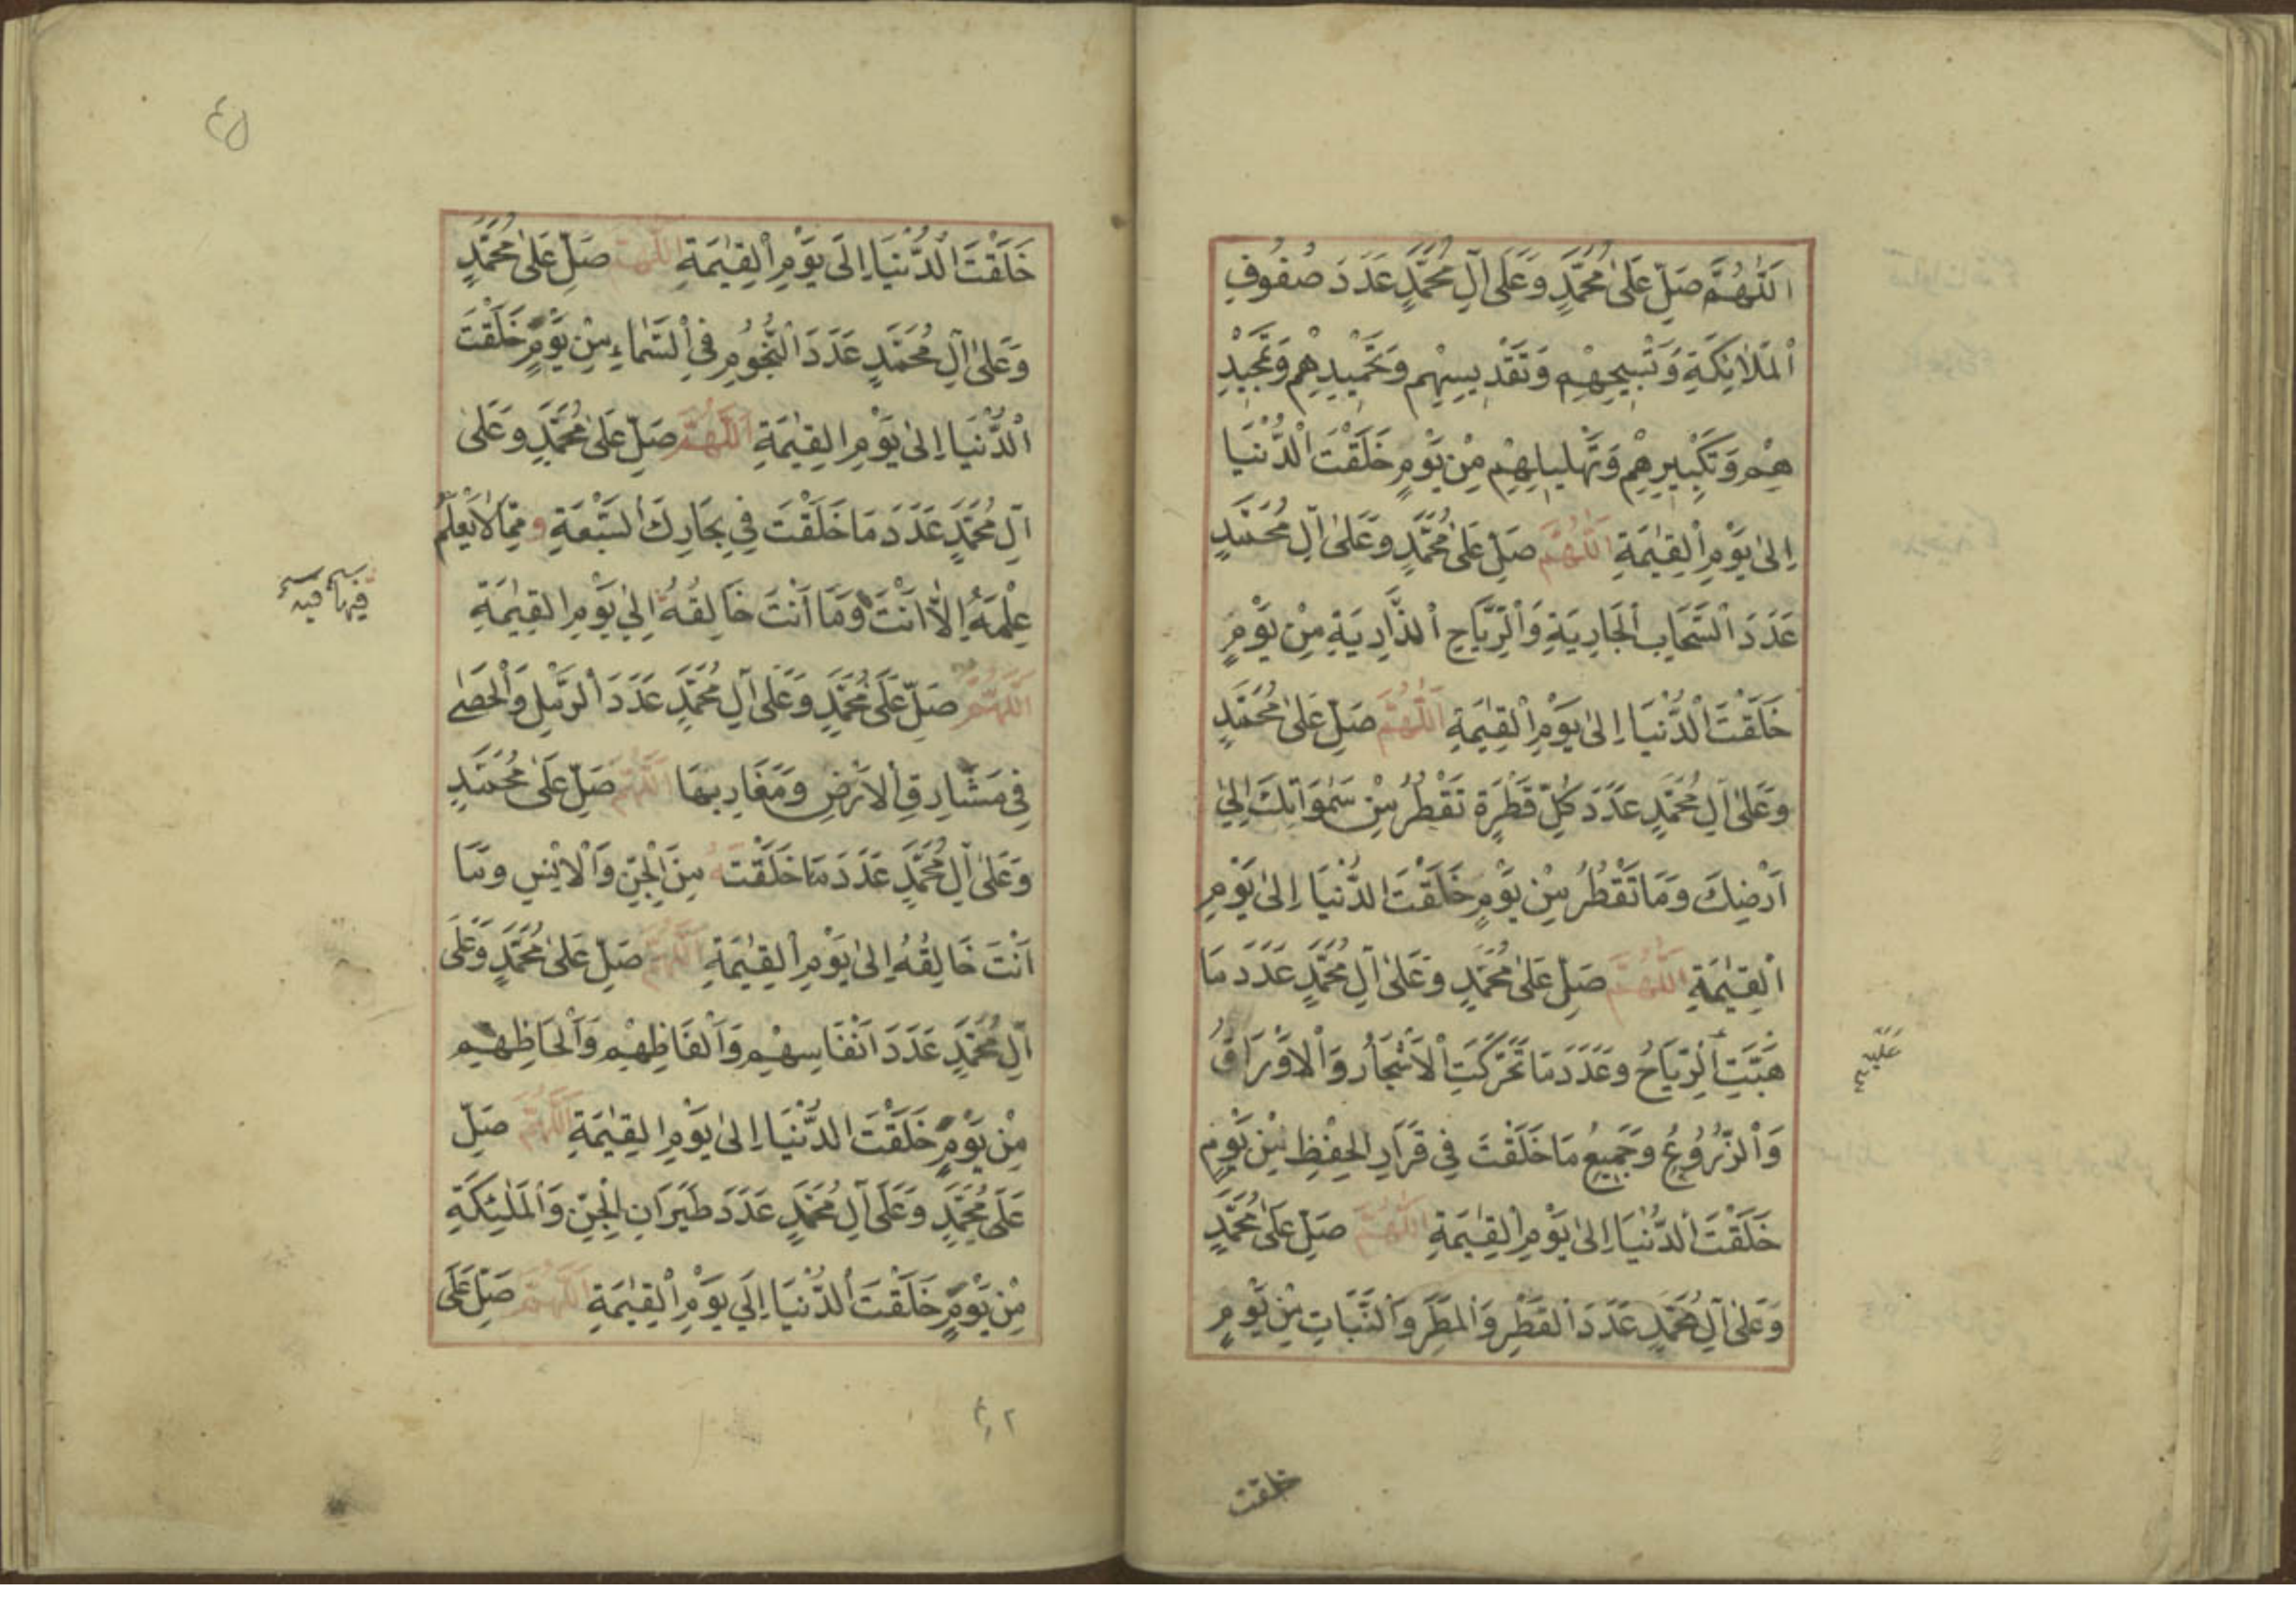 اَللّٰهُمَّ صَلِّ عَلٰى مُحَمَّدٍ وَعَلٰى اٰلِ مُحَمَّدٍ عَدَدَ صُفُوفِ
اْلمَلَائِكَةِ وَتَسْبِيحِهِمْ وَتَقْدِيسِهِمْ وَتَحْمِيدِهِمْ وَتَمْجِيْدِ
هِمْ وَتَكْبِيرِهِمْ وَتَهْلِيلِهِمْ مِنْ يَوْمٍ خَلَقْتَ الْدُّنْيَا
اِلٰى يَوْمِ اْلقِيٰمَةِ اَللّٰهُمَّ صَلِّ عَلٰى مُحَمَّدٍ وَعَلٰى اٰلِ مُحَمَّدٍ
عَدَدَ السَّحَابِ الْجَارِيَةِ وَالْرِّيَاحِ الْذَّارِيَةِ مِنْ يَوْمٍ
خَلَقْتَ الْدُّنْيَا اِلٰى يَوْمِ اْلقِيٰمَةِ اَللّٰهُمَّ صَلِّ عَلٰى مُحَمَّدٍ
وَعَلٰى اٰلِ مُحَمَّدٍ عَدَدَ كُلِّ قَطْرَةٍ تَقْطُرُ مِنْ سَمٰوَاتِكَ اِلٰى
اَرْضِكَ وَمَا تَقْطُرُ مِنْ يَوْمٍ خَلَقْتَ الدُّنْيَا اِلٰى يَوْمِ
اْلقِيٰمَةِ اَللّٰهُمَّ صَلِّ عَلٰى مُحَمَّدٍ وَعَلٰى اٰلِ مُحَمَّدٍ عَدَدَ مَا
هَبَّتِ الْرِّيَاحُ وَعَدَدَ مَا تَحَرَّكَتِ الْاَشْجَارُ وَالْاَوْرَاقُ
عَلَيْهِ
وَالْزُّرُوعُ وَجَمِيعِ مَا خَلَقْتَ فِي قَرَارِ الحِفْظِ مِنْ يَوْمٍ
خَلَقْتَ الْدُّنْيَا اِلٰى يَوْمِ اْلقِيٰمَةِ اَللّٰهُمَّ صَلِّ عَلٰى مُحَمَّدٍ
وَعَلٰى اٰلِ مُحَمَّدٍ عَدَدَ الْقَطْرِ وَالْمَطَرِ وَالْنَّبَاتِ مِنْ يَوْمٍ
خلقت
خَلَقْتَ الْدُّنْيَا اِلٰى يَوْمِ اْلقِيٰمَةِ اللّٰهُمَّ صَلِّ عَلٰى مُحَمَّدٍ
وَعَلٰى اٰلِ مُحَمَّدٍ عَدَدَ الْنُّجُومِ فِي الْسَّمَاءِ مِنْ يَوْمٍ خَلَقْتَ
الْدُّنْيَا اِلٰى يَوْمِ القِيٰمَةِ اَللّٰهُمَّ صَلِّ عَلٰى مُحَمَّدٍ وَعَلٰى
اٰلِ مُحَمَّدٍ عَدَدَ مَا خَلَقْتَ فِي بِحَارِكَ الْسَّبْعَةِ وَمِمَّا لَا يَعْلَمُ
عِلْمَهُ اِلَّا اَنْتَ وَمَا اَنْتَ خَالِقُهُ اِلٰى يَوْمِ القِيٰمَةِ
اَللّٰهُمَّ صَلِّ عَلَى مُحَمَّدٍ وَعَلٰى اٰلِ مُحَمَّدٍ عَدَدَ الْرَّمْلِ وَالْحَصٰى
فِي مَشَارِقِ الْاَرْضِ وَمَغَارِبِهَا اَللّٰهُمَّ صَلِّ عَلٰى مُحَمَّدٍ
وَعَلٰى اٰلِ مُحَمَّدٍ عَدَدَ مَا خَلَقْتَهُ مِنَ الْجِنِّ وَالْاِنْسِ وَمَا
اَنْتَ خَالِقُهُ اِلٰى يَوْمِ اْلقِيٰمَةِ اَللّٰهُمَّ صَلِّ عَلٰى مُحَمَّدٍ وَعَلٰى
اٰلِ مُحَمَّدٍ عَدَدَ اَنْفَاسِهِمْ وَاَلْفَاظِهِمْ وَاَلْحَاظِهِمْ
مِنْ يَوْمٍ خَلَقْتَ الدُّنْيَا اِلٰى يَوْمِ القِيٰمَةِ اَللّٰهُمَّ صَلِّ
عَلٰى مُحَمَّدٍ وَعَلٰى اٰلِ مُحَمَّدٍ عَدَدَ طَيَرَانِ الْجِنِّ وَالْمَلٰئِكَةِ
مِنْ يَوْمٍ خَلَقْتَ الْدُّنْيَا اِلَى يَوْمِ اْلقِيٰمَةِ اَللّٰهُمَّ صَلِّ عَلٰى